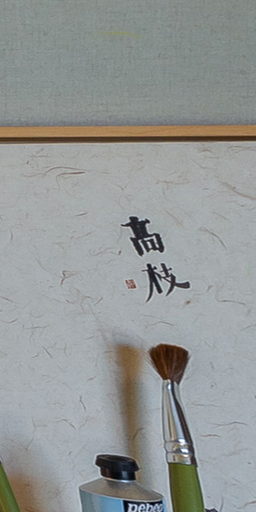 高
枝
pebeo